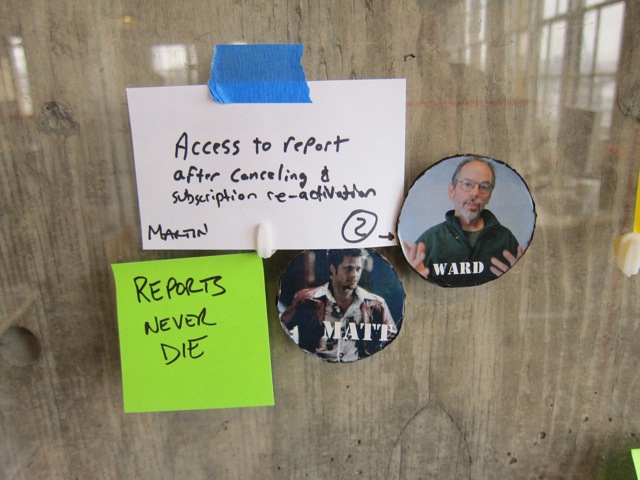 Access to report
after canceling &
subscription re-activation
MARTIN
2
WARD
MATT
REPORTS
NEVER
DIE